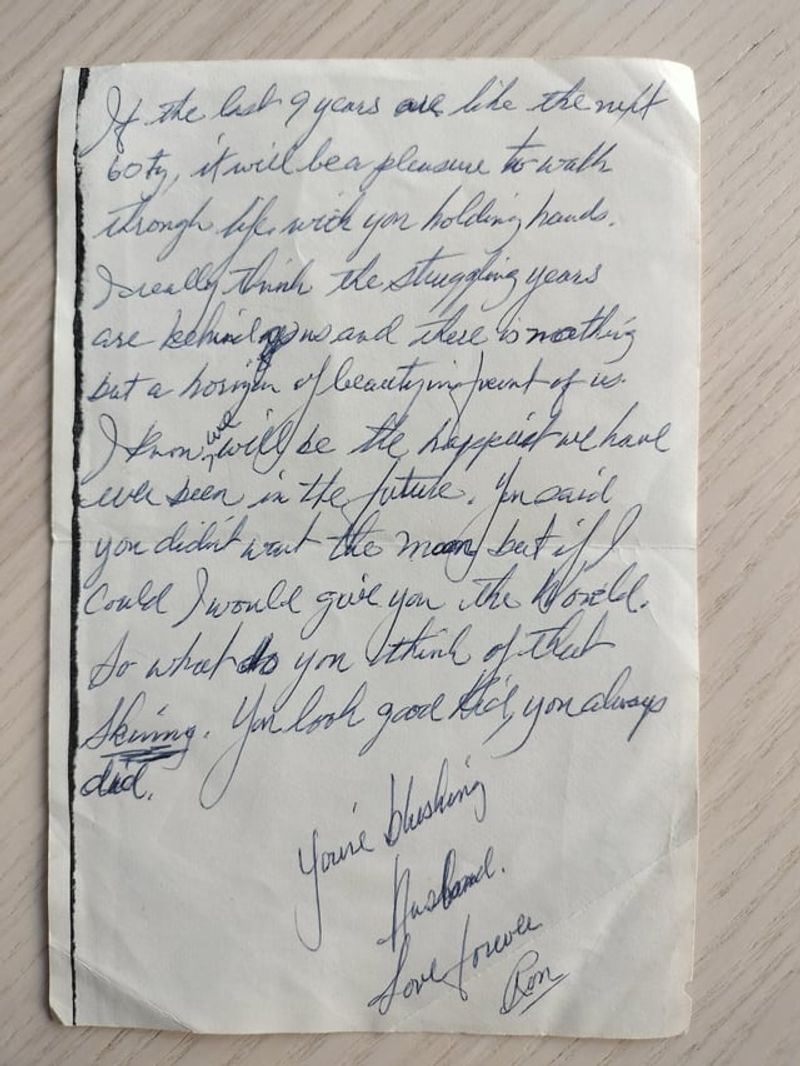 If the last 9 years are like the next
60ty, it will be a pleasure to walk
through life with you holding hands.
I really think the struggling years
are behind us and there is nothing
but a horizon of beauty in front of us.
I know we will be the happiest we have
ever been in the future. You said
you didn't want the moon, but if I
could I would give you the World.
So what do you think of that
Skinny. You look good kid, you always
did.
You're blushing
Husband.
Love forever
Ron